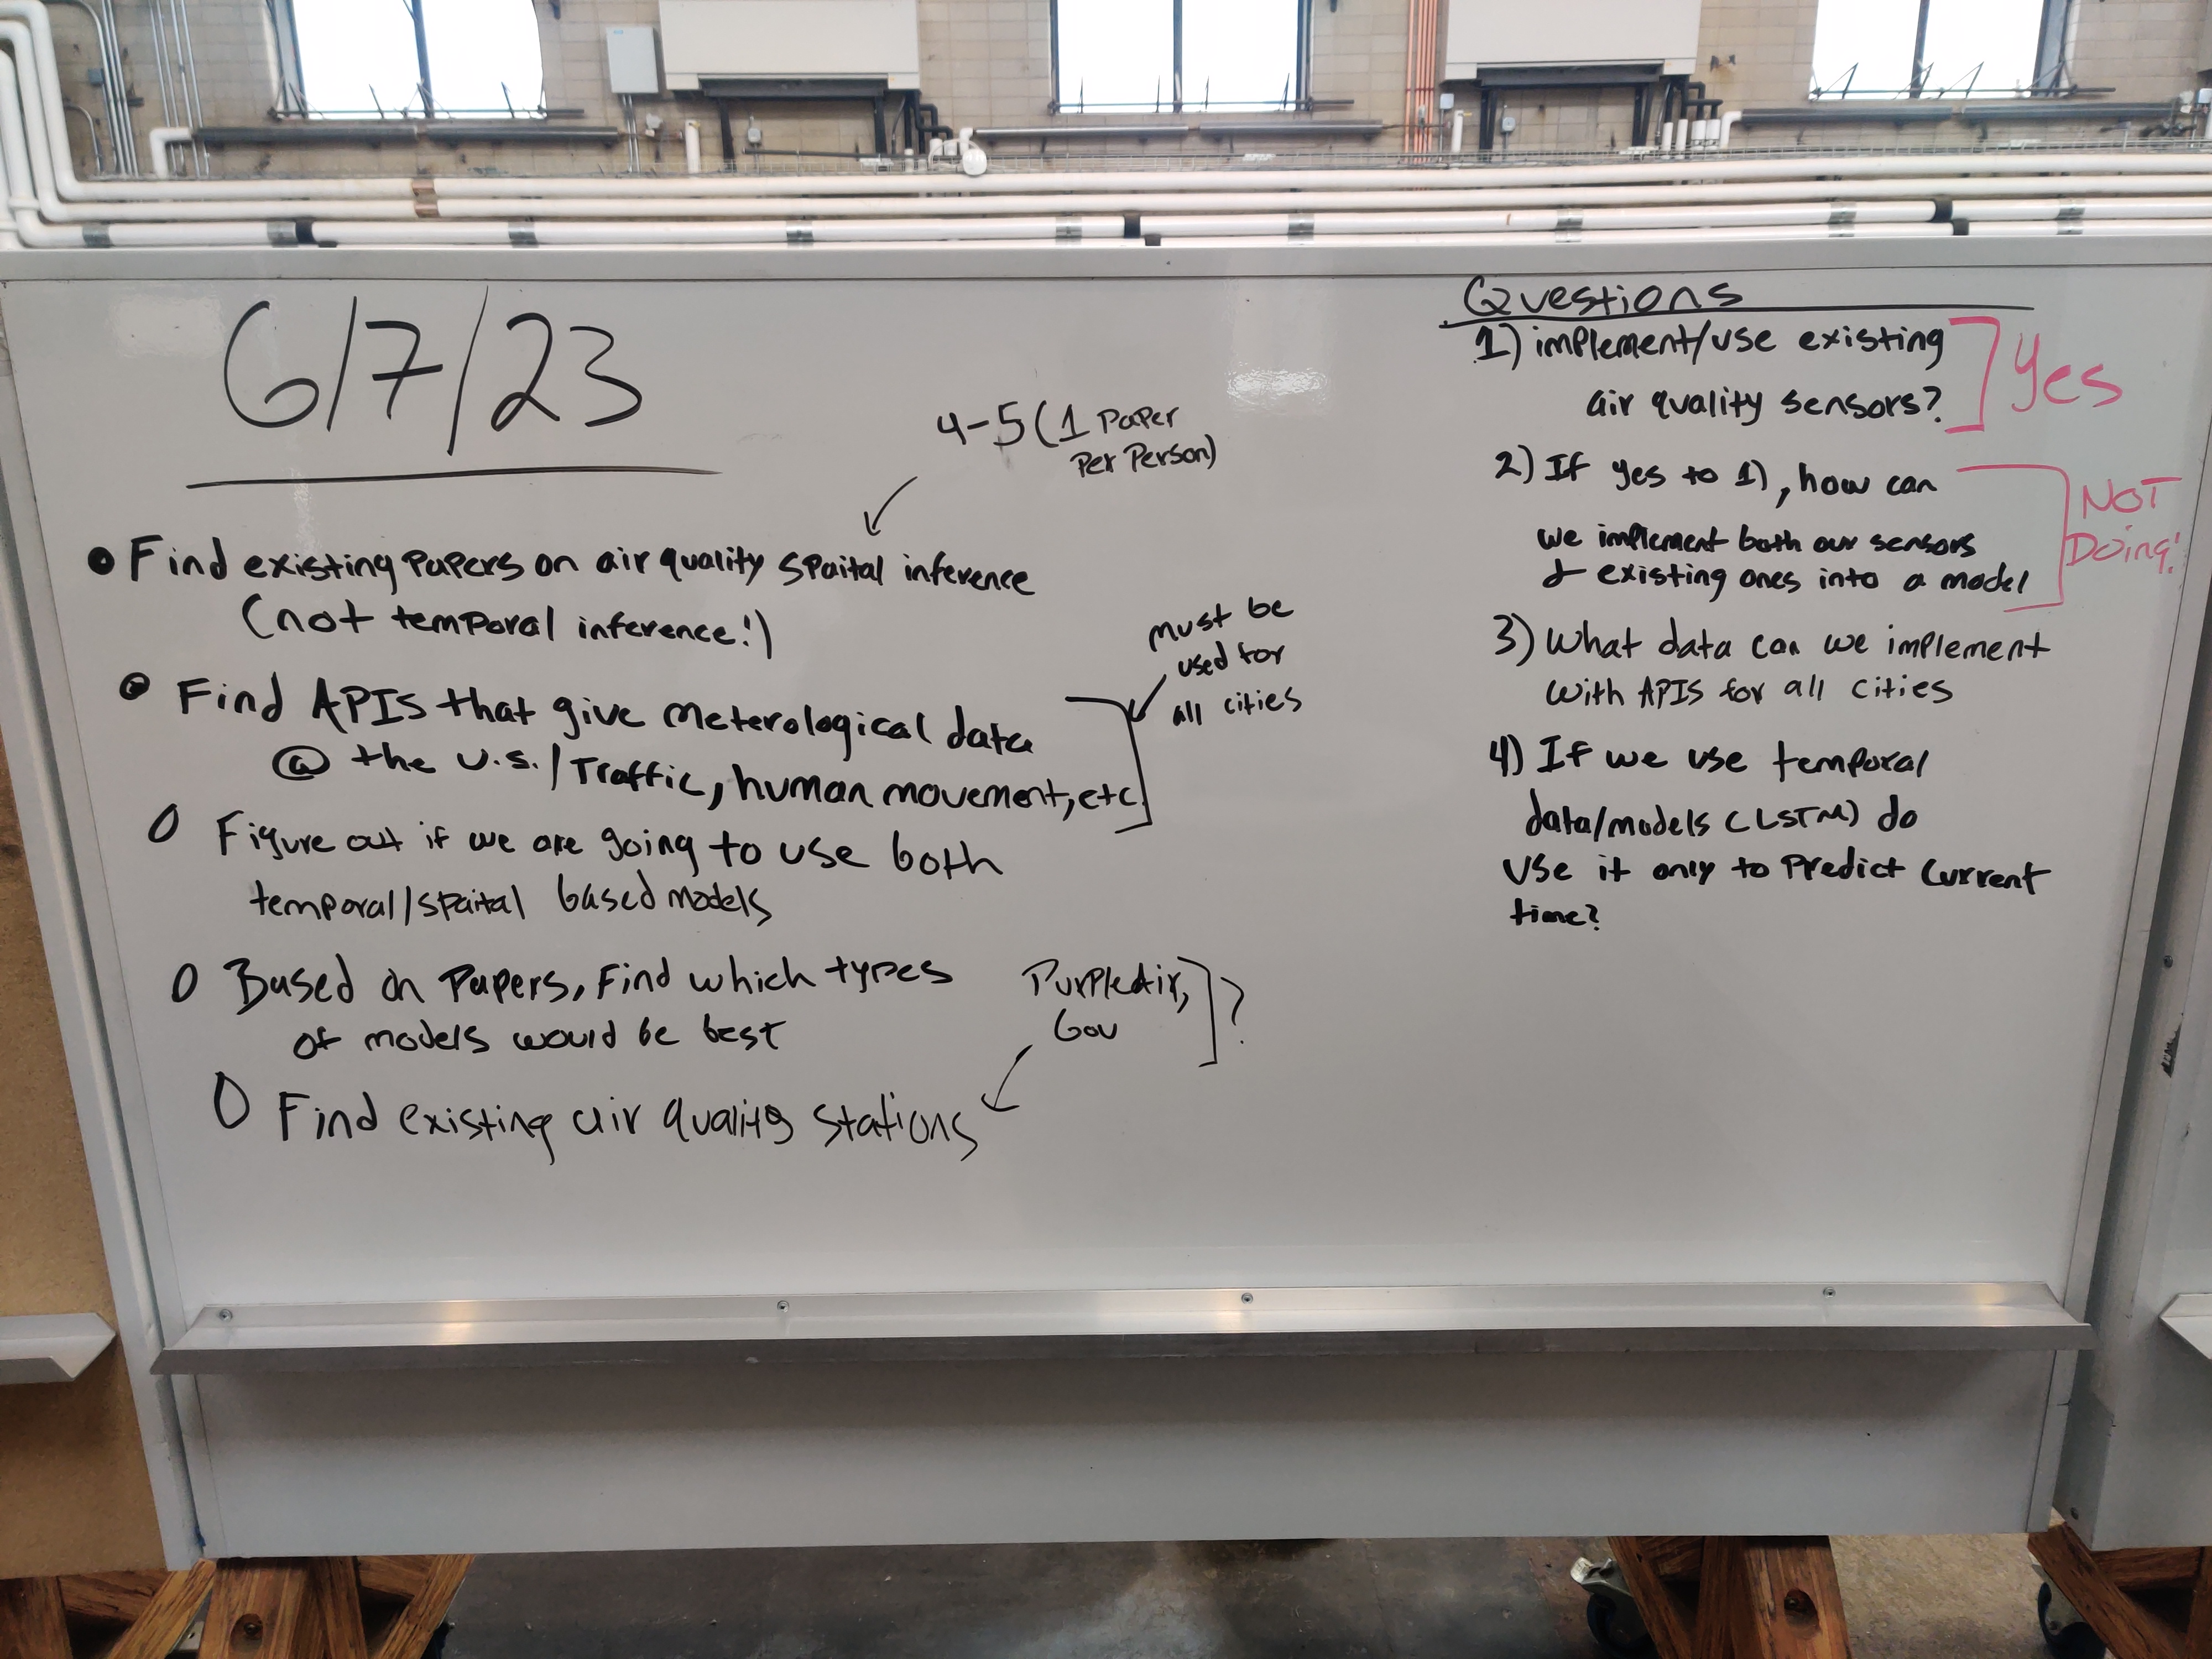 6/7/23
4-5 (1 Paper
Per Person)
• Find existing Papers on air quality spaital inference
(not temporal inference!)
• Find APIs that give meterological data
@ the U.S. / Traffic, human movement, etc.
must be
used for
all cities
O Figure out if we are going to use both
temporal/spaital based models
O Based on Papers, Find which types
of models would be best
PurpleAir,
Gov
?
O Find existing air quality stations
Questions
1) implement/use existing
air quality sensors?
Yes
2) If yes to 1), how can
we implement both our sensors
& existing ones into a model
NOT
Doing!
3) What data can we implement
with APIs for all cities
4) If we use temporal
data/models (LSTM) do
use it only to Predict Current
time?